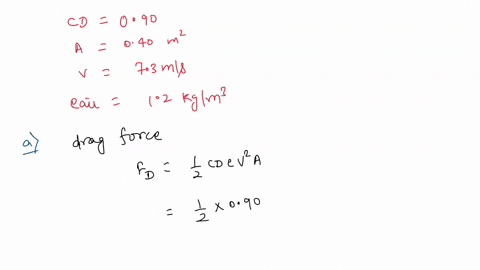 CD = 0.90
A = 0.40 m²
V = 7.3 m/s
ρair = 1.2 kg/m³
a) drag force
FD = 1/2 CD ρ V² A
= 1/2 × 0.90